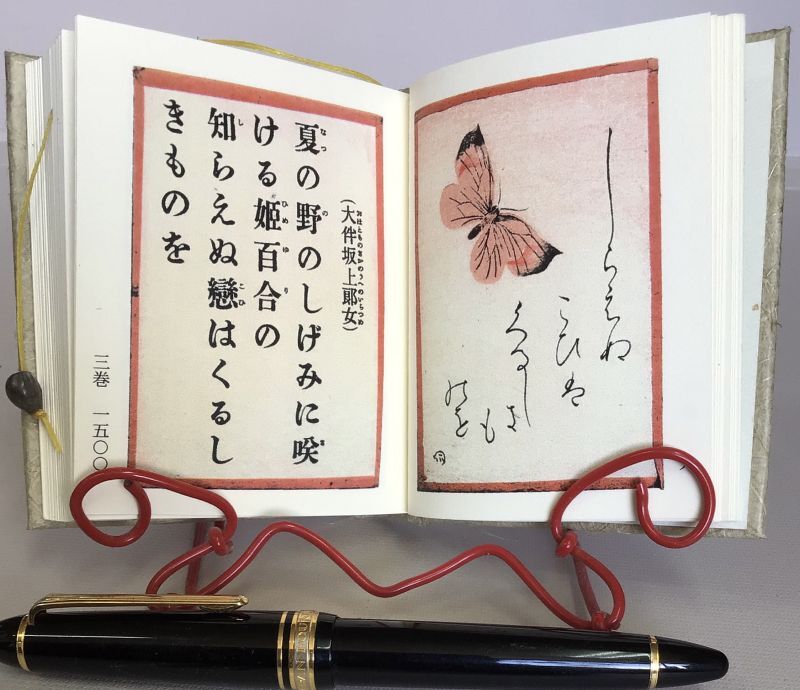 しらえぬ
こひは
くるしき
も
のを
(大伴坂上郎女)
夏の野のしげみに咲
ける姫百合の
知らえぬ戀はくるし
きものを
三巻 一五〇〇